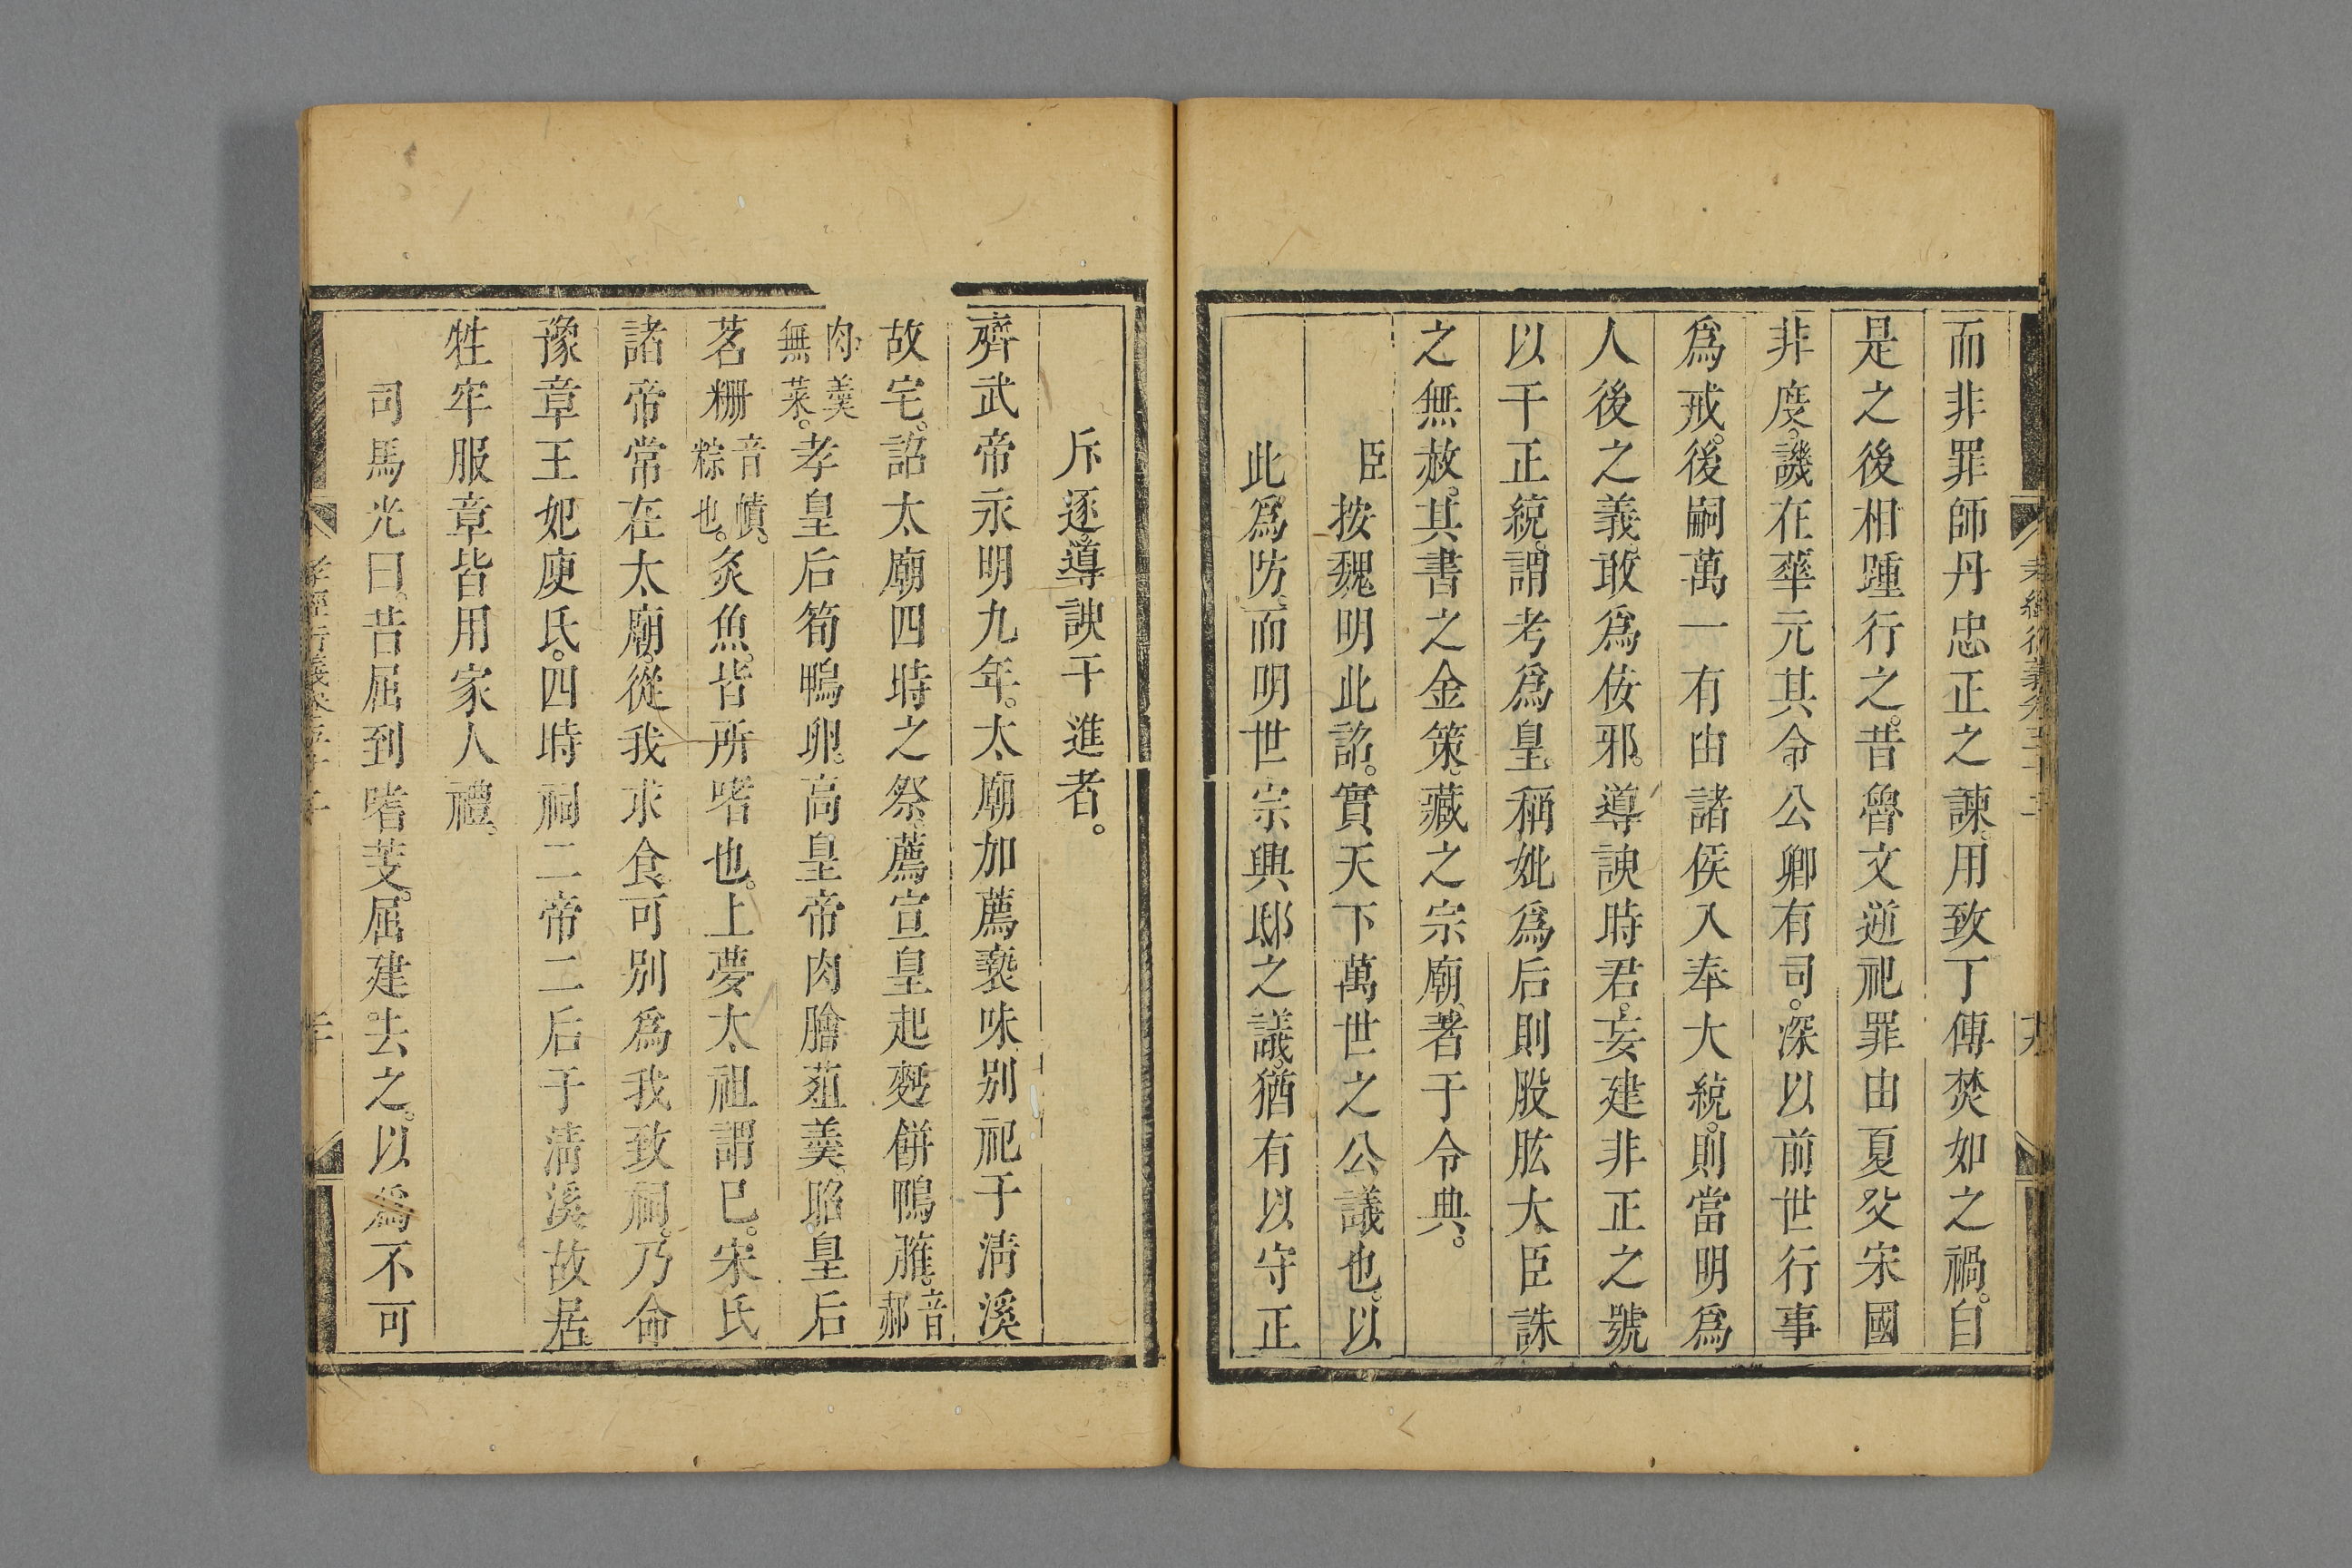 而非罪師丹忠正之諫。用致丁傅焚如之禍。自
是之後相踵行之。昔魯文逆祀罪由夏父宋國
非度。譏在華元其令公卿有司。深以前世行事
爲戒。後嗣萬一有由諸侯入奉大統。則當明爲
人後之義。敢爲佞邪。導諛時君。妄建非正之號
以干正統。謂考爲皇。稱妣爲后則股肱大臣誅
之無赦。其書之金策。藏之宗廟。著于令典。
臣按魏明此詔。實天下萬世之公議也。以
此爲防。而明世宗興邸之議。猶有以守正
斥逐。導諛干進者。
齊武帝永明九年。太廟加薦褻味別祀于淸溪
故宅。詔太廟四時之祭。薦宣皇起麪餅鴨臛。音郝
肉羹無菜。孝皇后筍鴨卵。高皇帝肉膾葅羹。昭皇后
茗粣音幘。粽也。炙魚。皆所嗜也。上夢太祖謂已。宋氏
諸帝常在太廟。從我求食。可別爲我致祠。乃命
豫章王妃庾氏。四時祠二帝二后于淸溪故居。
牲牢服章皆用家人禮。
司馬光曰。昔屈到嗜芰。屈建去之。以爲不可